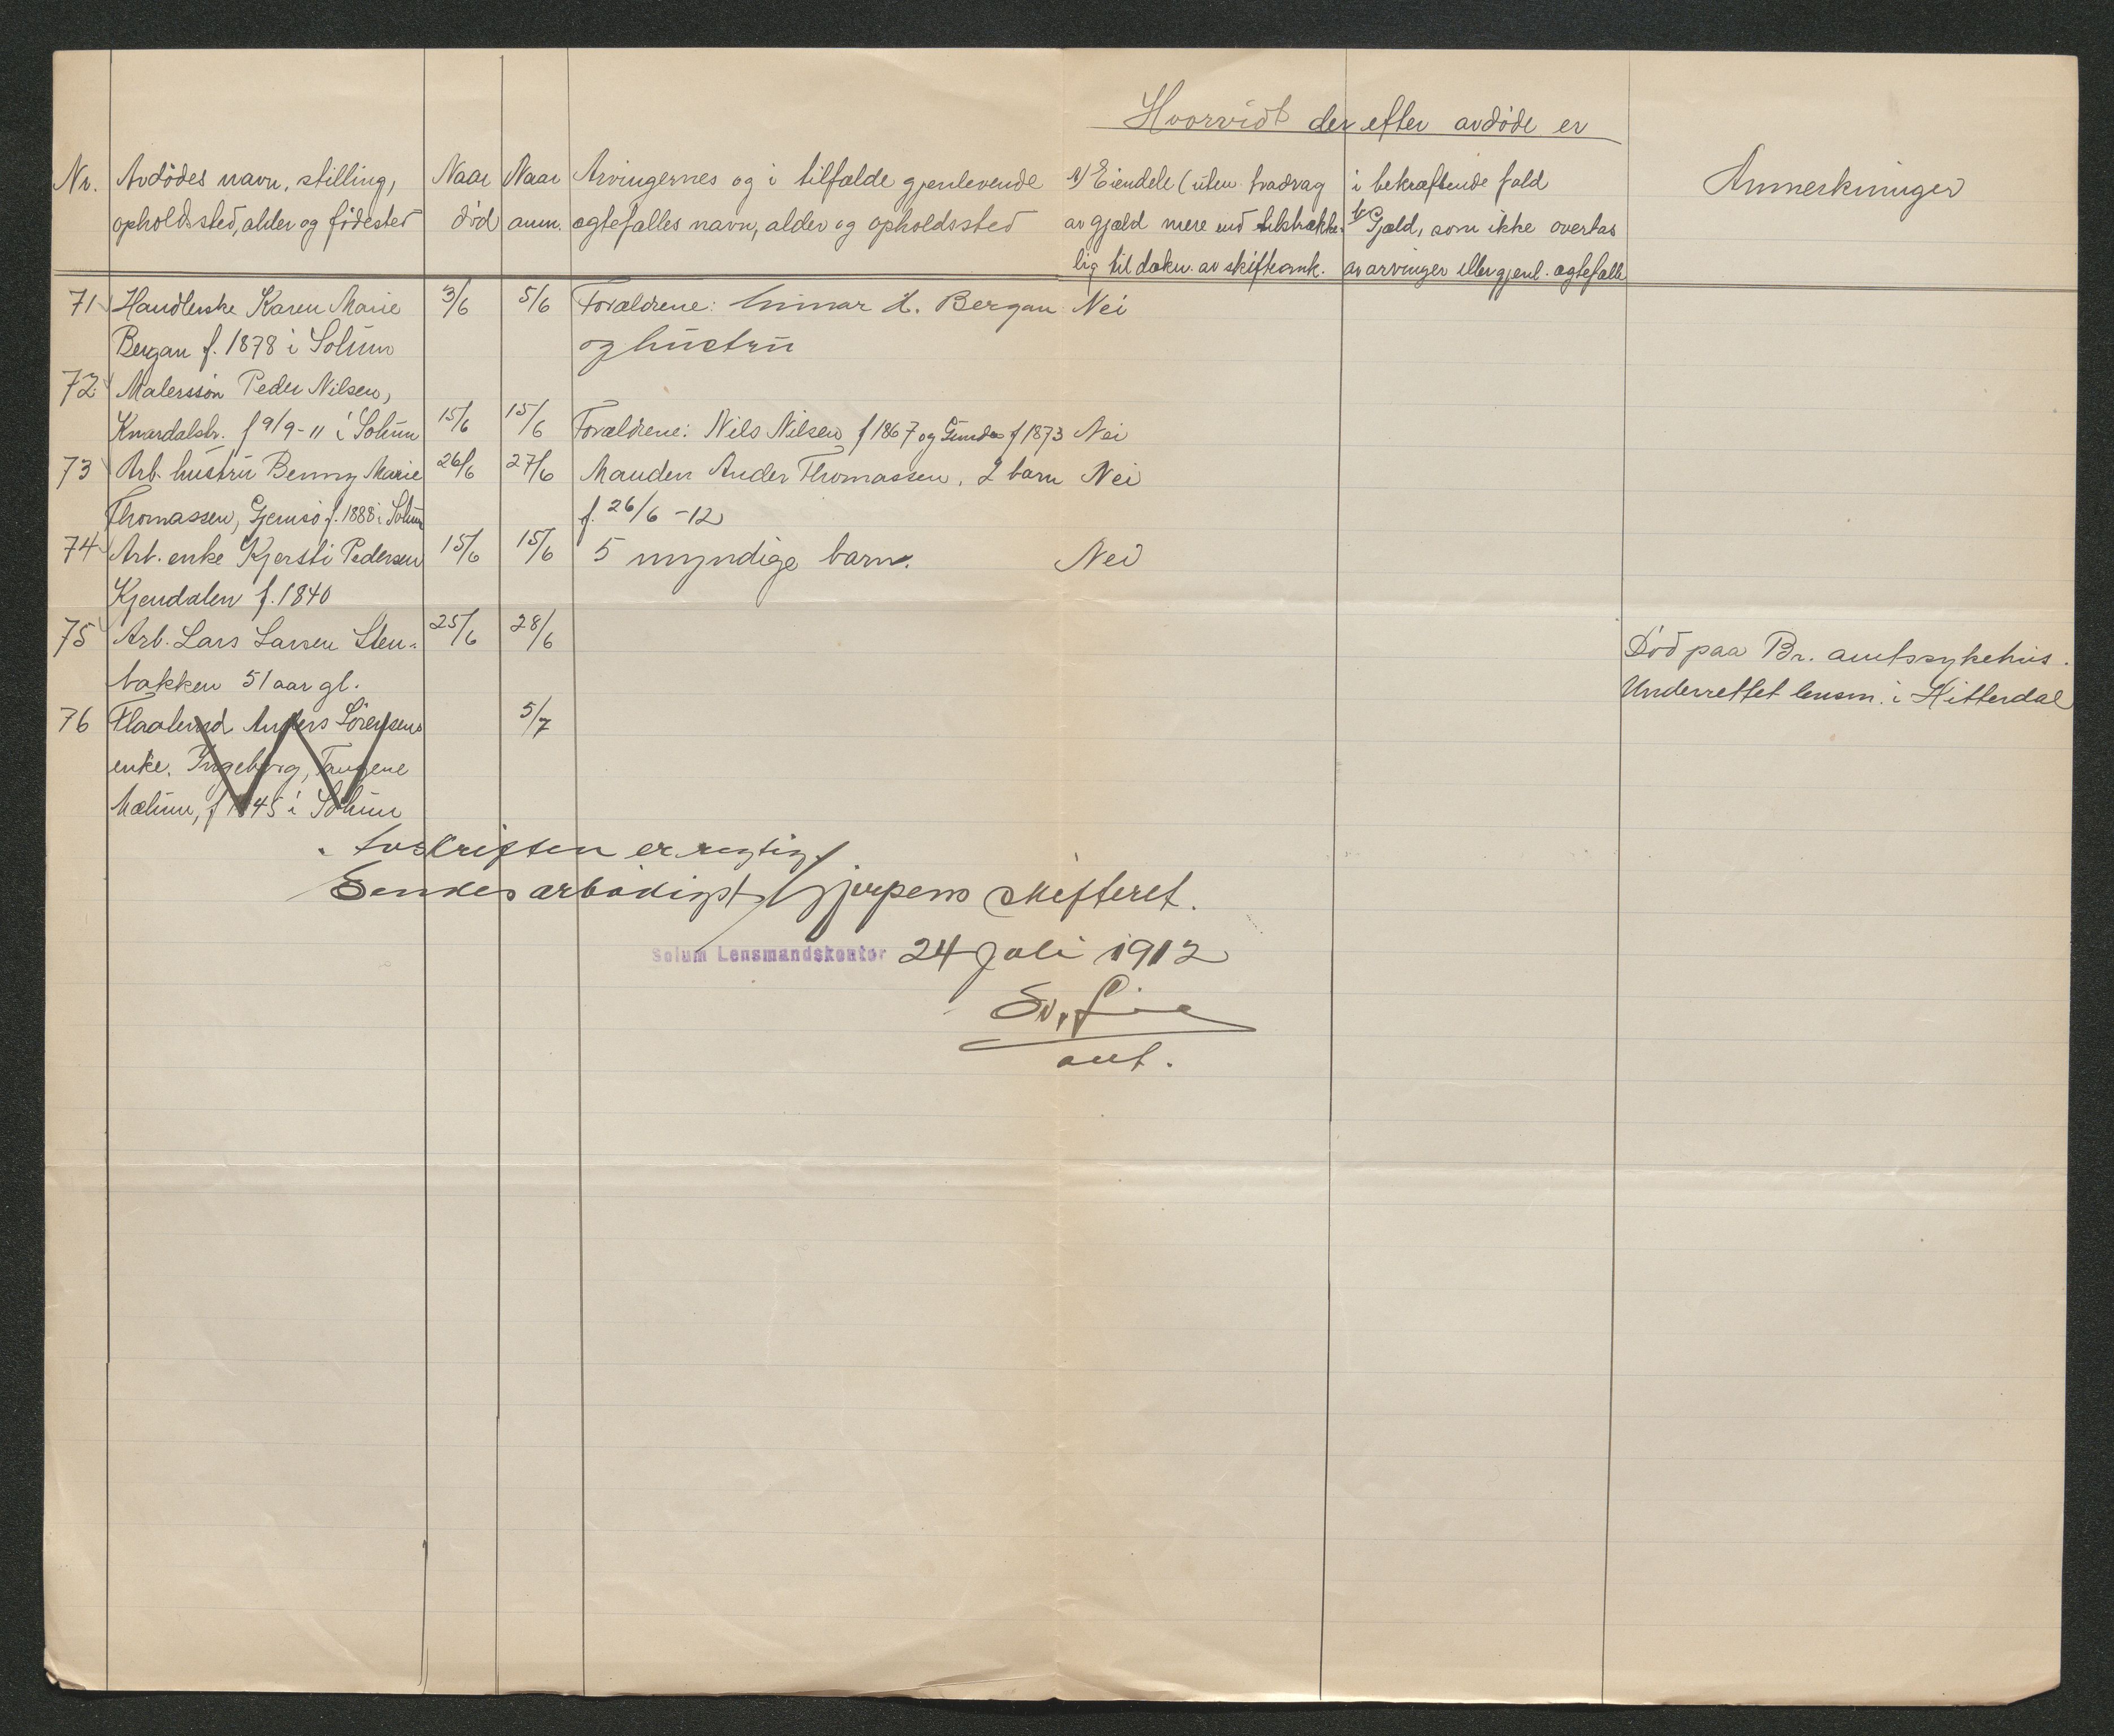 Hvorvidt der efter avdøde er
Nr. Avdødes navn, stilling, Naar Naar Arvingernes og i tilfælde gjenlevende a) Eiendele (uten fradrag i bekræftende fald Anmerkninger
opholdssted, alder og fødested død anm. ægtefælles navn, alder og opholdssted av gjæld mere end tilstrække- b) Gjæld, som ikke overtas
lig til dækn. av skifteomk. av arvinger eller gjenl. ægtefælle
71 Handlerske Karen Marie 3/6 5/6 Forældrene: H. Bergan Nei
Bergan f. 1878 i Solum og hustru
72 Malerssøn Peder Nilsen,
Knardalstr. f 9/9-11 i Solum 15/6 15/6 Forældrene: Nils Nilsen f 1867 og f 1873 Nei
73 Arb. hustru Benny Marie 26/6 27/6 Manden Ander Thomassen, 2 barn Nei
Thomassen, Gjemsø f. 1888 i Solum f. 26/6 -12
74 Arb. enke Kjersti Pedersen 15/6 15/6 5 myndige barn. Nei
Kjendalen f. 1840
75 Arb. Lars Larsen Sten- 25/6 28/6 Død paa Br. amtssykehus.
bakken 51 aar gl. Underrettet lensm. i Hitterdal
76 Anders Sørensens 5/7
enke. Ingeborg, Tangene
Mælum, f 1845 i Solum
Avskriften er rigtig.
Sendes ærbødigst Gjerpens skifteret.
Solum Lensmandskontor 24 Juli 1912
Sv. Lie
aut.